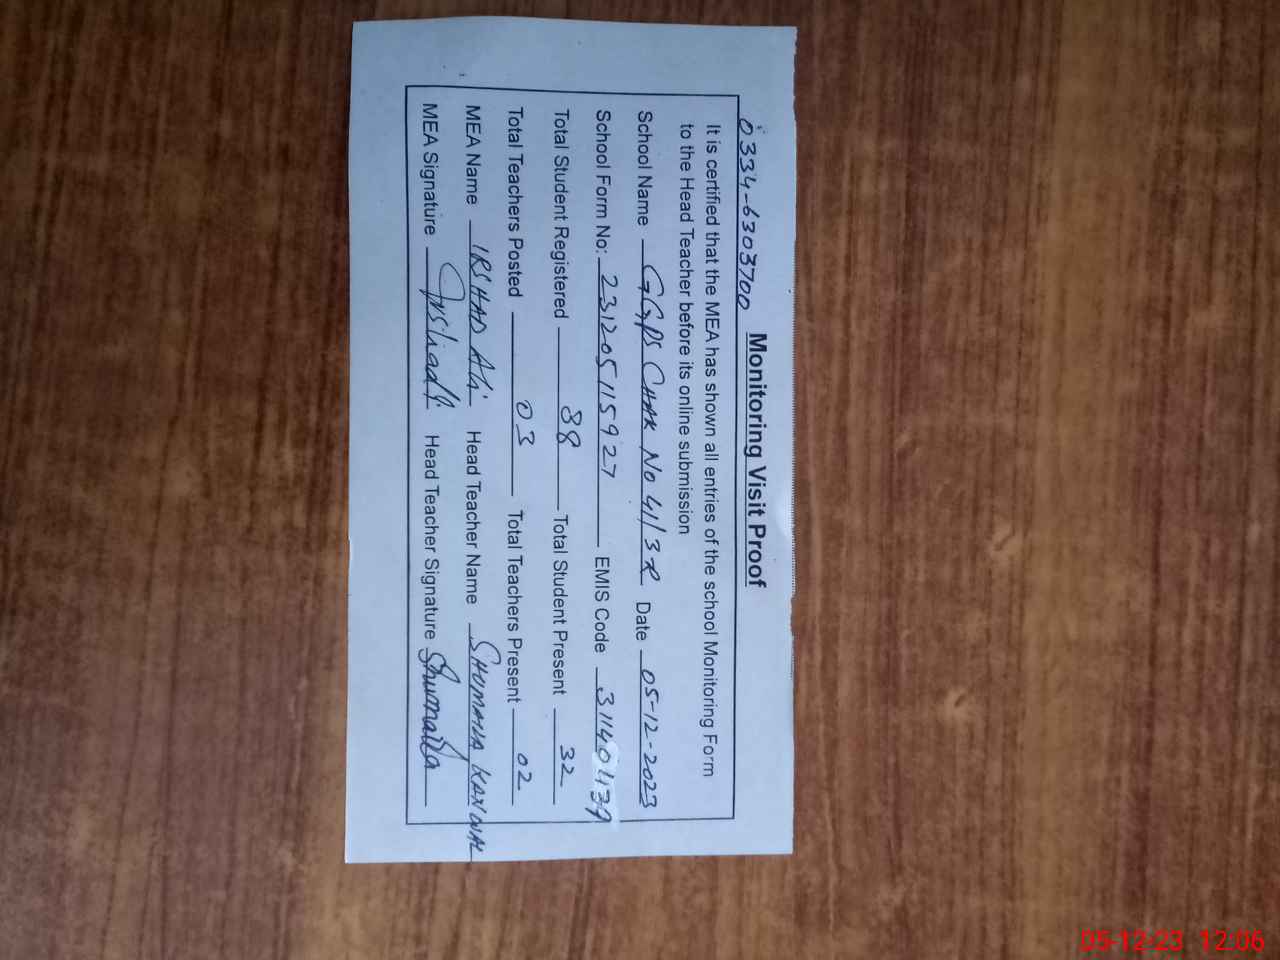 0334-6303700 Monitoring Visit Proof
It is certified that the MEA has shown all entries of the school Monitoring Form
to the Head Teacher before its online submission
School Name GGPS CHAK No 41/3R Date 05-12-2023
School Form No: 231205115927 EMIS Code 31140139
Total Student Registered 88 Total Student Present 32
Total Teachers Posted 03 Total Teachers Present 02
MEA Name IRSHAD Ali Head Teacher Name SHUMAILA KANWAL
MEA Signature Head Teacher Signature Shumaila
05-12-23 12:06